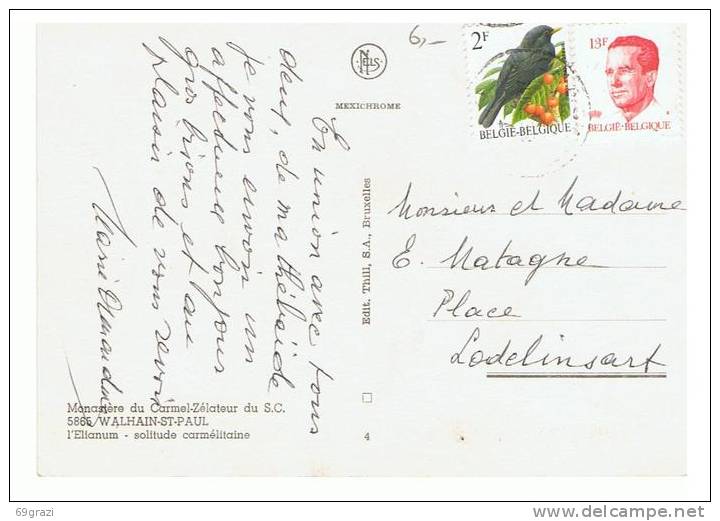 6,-
2F
BELGIË-BELGIQUE
13F
BELGIË-BELGIQUE
NELS
MEXICHROME
En union avec tous
deux, de ma thébaïde
je vous envoie un
affectueux bonjour
gros bisous et au
plaisir de vous revoir
Marie Amandine
Edit. Thill, S.A., Bruxelles
4
Monsieur et Madame
E. Matagne
Place
Lodelinsart
Monastère du Carmel-Zélateur du S.C.
5865 WALHAIN-ST-PAUL
l'Elianum - solitude carmélitaine
69grazi
delcampe.net